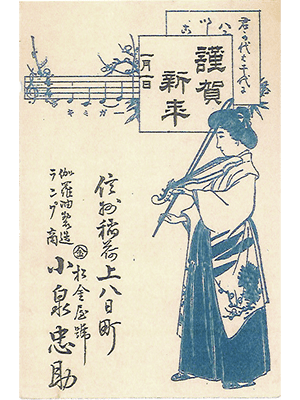 君が代は千代に
謹賀
新年
一月一日
ーガミキ
信州稲荷上八日町
㊎松金屋號
小泉忠助
伽羅油製造
ランプ商